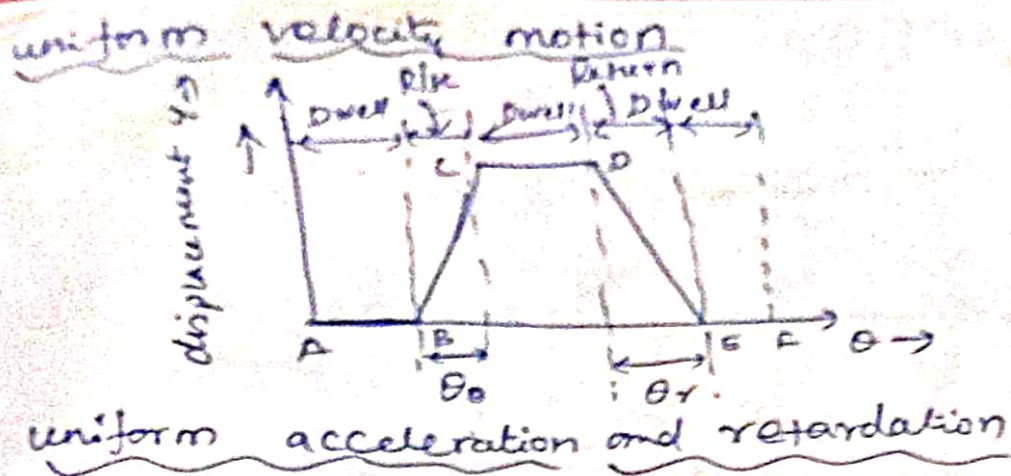 uniform velocity motion
Rise Return
Dwell Dwell Dwell
displacement
C D
A B E F θ →
θo θr
uniform acceleration and retardation